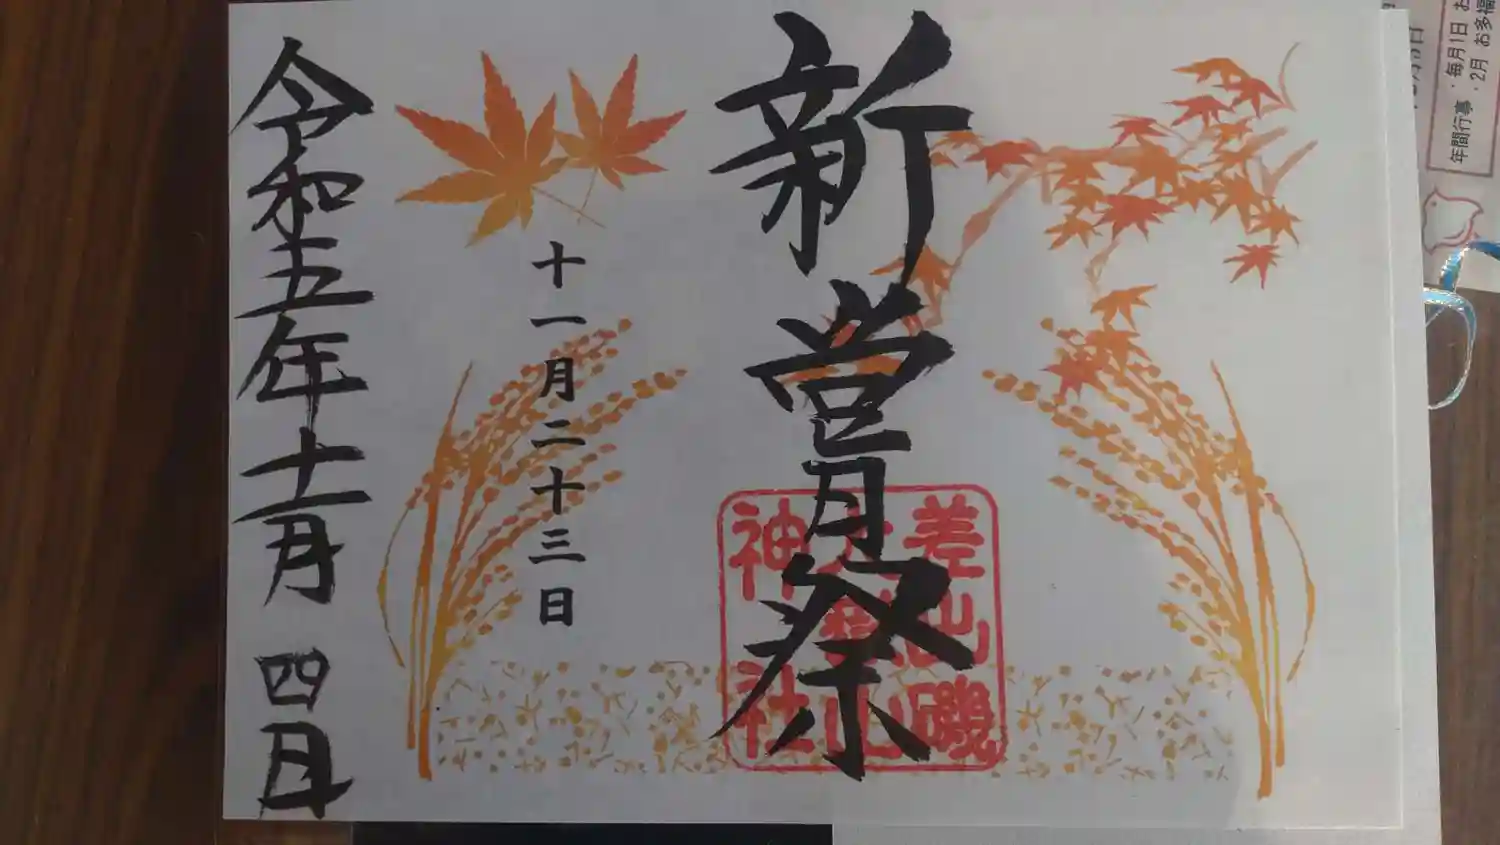 新嘗祭
差出磯
大嶽山
神社
十一月二十三日
令和五年十一月四日
年間行事 : 毎月1日 お
・2月 お多福